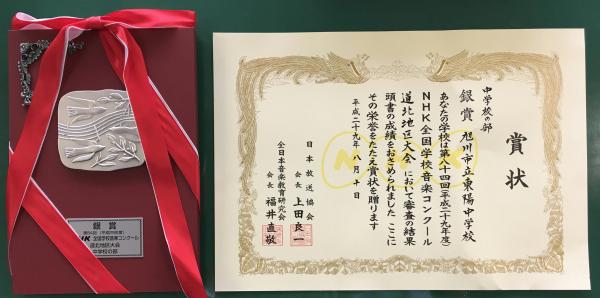 賞状
中学校の部
銀賞 旭川市立東陽中学校
あなたの学校は第八十四回(平成二十九年度)
NHK全国学校音楽コンクール
道北地区大会において審査の結果
頭書の成績をおさめられました ここに
その栄誉をたたえ賞状を贈ります
平成二十九年八月十日
日本放送協会
会長 上田良一
全日本音楽教育研究会
会長 福井直敬
NHK
銀賞
第84回(平成29年度)
NHK 全国学校音楽コンクール
道北地区大会
中学校の部